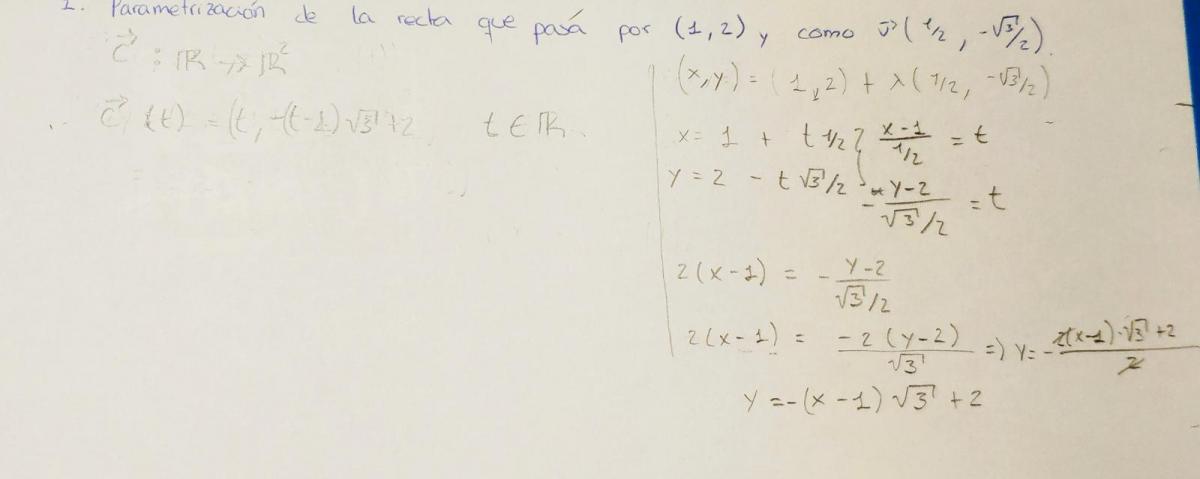 1. Parametrización de la recta que pasá por (1,2) y como v⃗(1/2, -√3/2).
c⃗ : ℝ → ℝ²
c⃗ (t) = (t, -(t-1)√3+2 t ∈ ℝ.
(x,y) = (1,2) + λ(1/2, -√3/2)
x = 1 + t 1/2 } (x-1)/(1/2) = t
y = 2 - t √3/2 } -(y-2)/(√3/2) = t
2(x-1) = - (y-2)/(√3/2)
2(x-1) = -2(y-2)/√3 => y = - (2(x-1)·√3+2)/2
y = -(x-1)√3 + 2